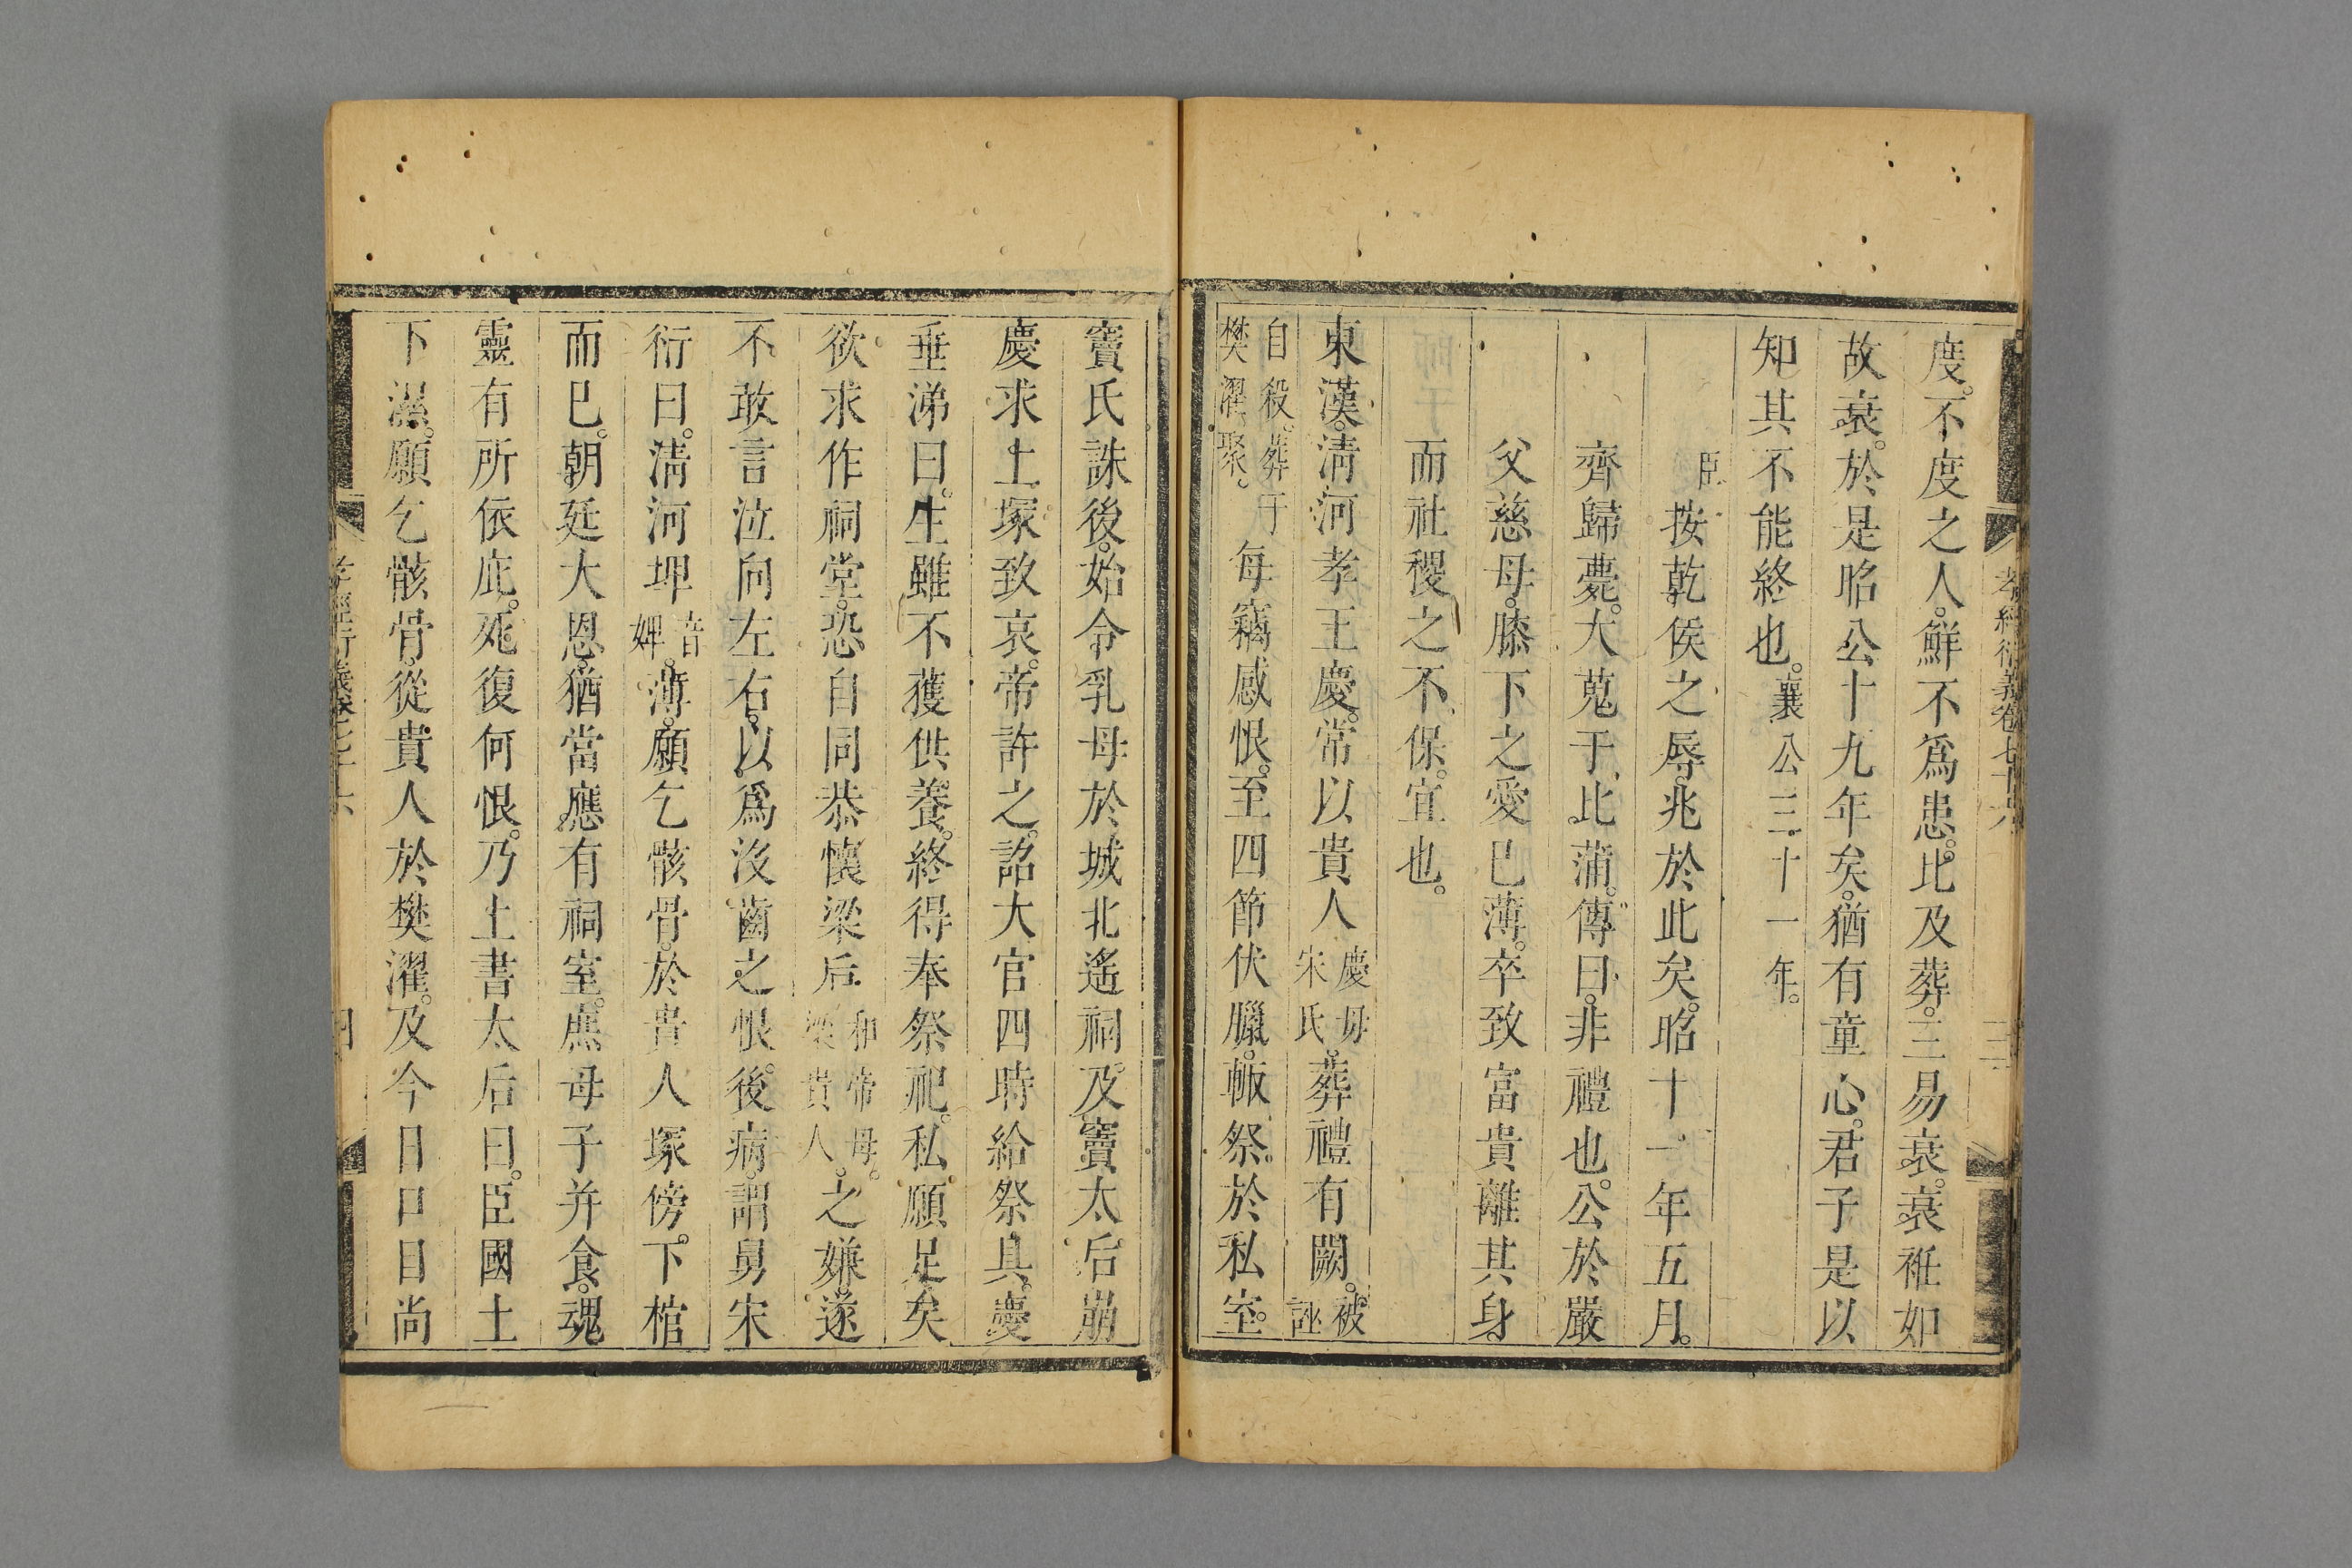 度不度之人鮮不爲患比及葬三易衰衰衽如
故衰於是昭公十九年矣猶有童心君子是以
知其不能終也襄公三十一年
臣按乾侯之辱兆於此矣昭十一年五月
齊歸薨大蒐于比蒲傳曰非禮也公於嚴
父慈母膝下之愛已薄卒致富貴離其身
而社稷之不保宜也
東漢清河孝王慶常以貴人慶母宋氏葬禮有闕被誣
自殺葬于樊濯聚每竊感恨至四節伏臘輙祭於私室
竇氏誅後始令乳母於城北遙祠及竇太后崩
慶求上塚致哀帝許之詔大官四時給祭具慶
垂涕曰生雖不獲供養終得奉祭祀私願足矣
欲求作祠堂恐自同恭懷梁后和帝母梁貴人之嫌遂
不敢言泣向左右以爲沒齒之恨後病謂舅宋
衍曰清河埤音婢薄願乞骸骨於貴人塚傍下棺
而已朝廷大恩猶當應有祠室庶母子并食魂
靈有所依庇死復何恨乃上書太后曰臣國土
下濕願乞骸骨從貴人於樊濯及今日口目尚
孝經衍義卷七十六
三
孝經衍義卷七十六
四